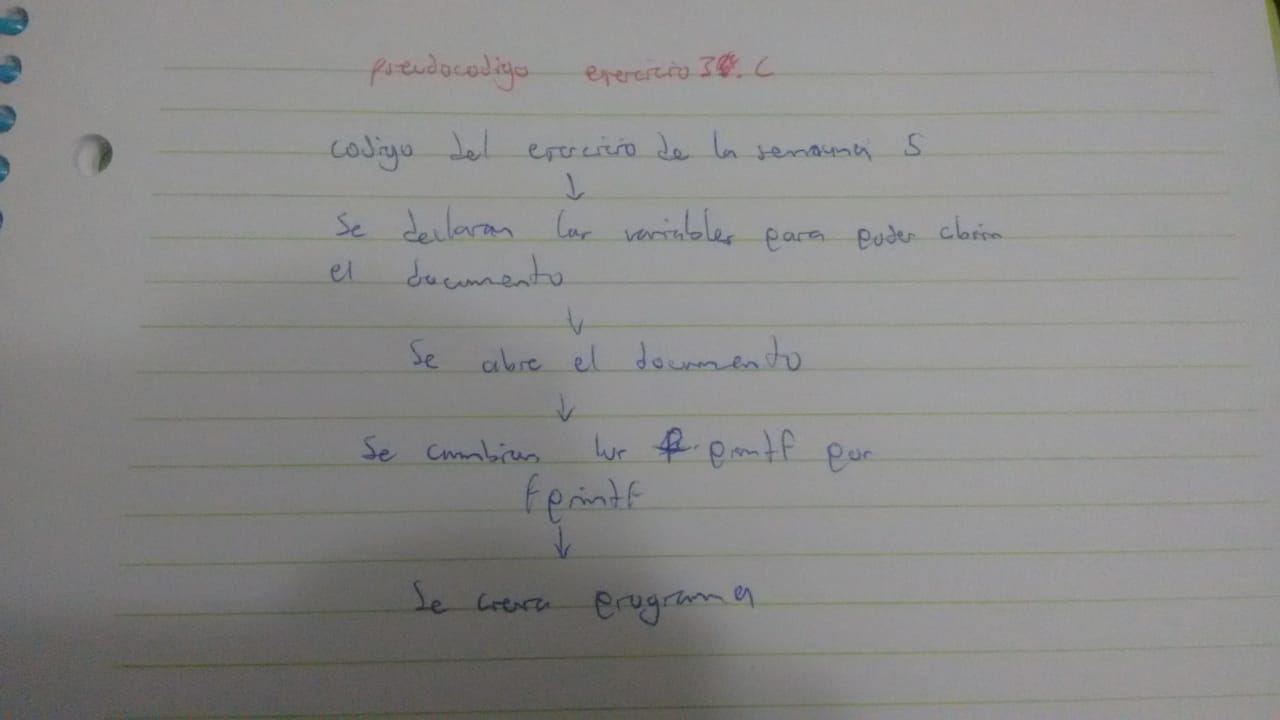 pseudocodigo exercicio 3. C
codigo del exercicio de la semana 5
↓
Se declaran las variables para poder abrir
el documento
↓
Se abre el documento
↓
Se cambian los printf por
fprintf
↓
Se cierra programa